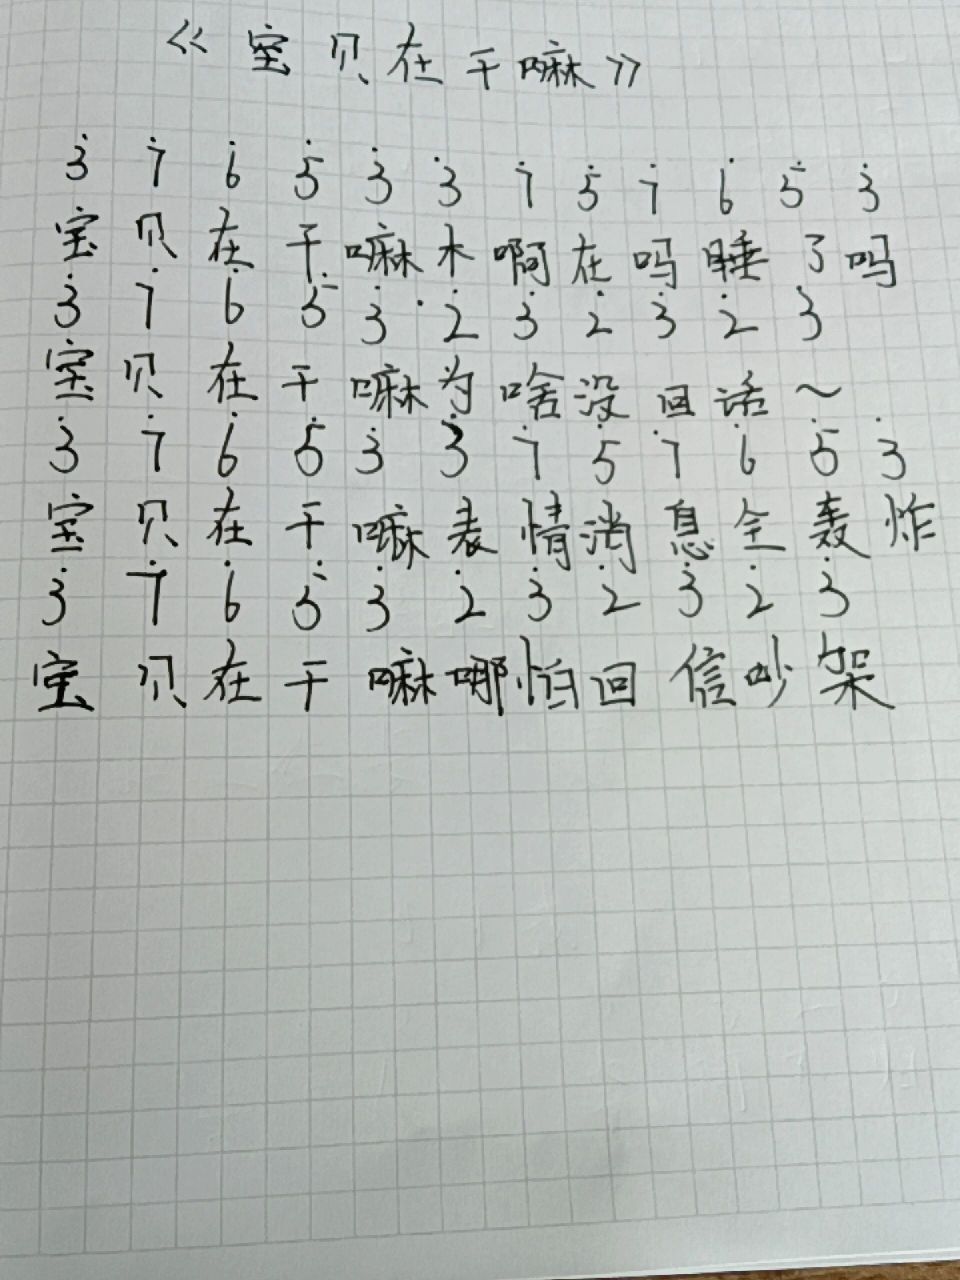 《宝贝在干嘛》
3̇ 7̇ 6̇ 5̇ 3̇ 3̇ 7̇ 5̇ 7̇ 6̇ 5̇ 3̇
宝贝在干嘛木啊在吗睡了吗
3̇ 7̇ 6̇ 5̇ 3̇ 2̇ 3̇ 2̇ 3̇ 2̇ 3̇
宝贝在干嘛为啥没回话~
3̇ 7̇ 6̇ 5̇ 3̇ 3̇ 7̇ 5̇ 7̇ 6̇ 5̇ 3̇
宝贝在干嘛表情消息全轰炸
3̇ 7̇ 6̇ 5̇ 3̇ 2̇ 3̇ 2̇ 3̇ 2̇ 3̇
宝贝在干嘛哪怕回信吵架